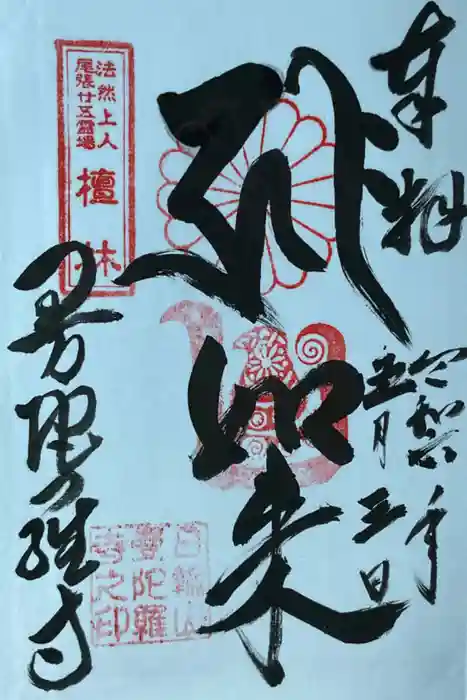 奉拝
令和六年
五月三日
弥如来
法然上人
尾張廿五霊場
檀林
曼陀羅寺
日輪山
曼陀羅
寺之印